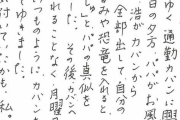 ゆく通勤カバンに興
日の夕方、パパがお風
浩がカバンから
全部出して自分の
みや恐竜を入れると、
」と、パパの真似を
した。その後カバンへ
れることなく、月曜の
てゆきました。
つものようにカバンを
付いてたかも、私。